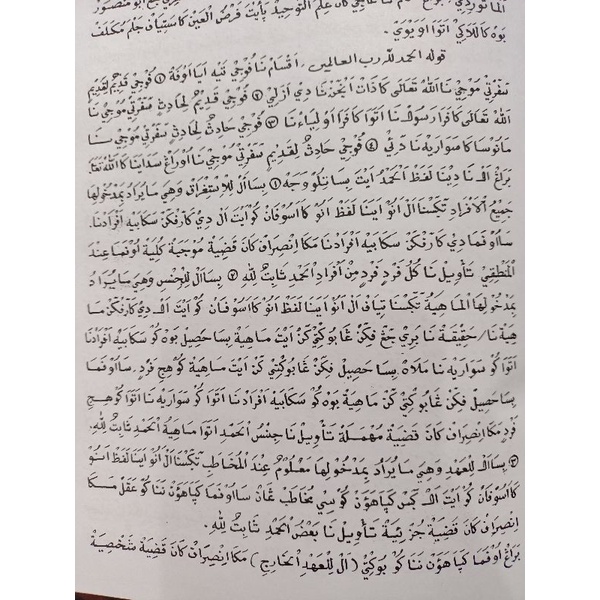 الماتوريدي، براغ
بوه كاللاكي اتوا اويوي.
قوله الحمد لله رب العالمين. اقسام نا فوجي تيه ايا اوفة ① فوجي قديم لقديم
سفرتي موجي نا الله تعالى كا ذات انجن نا دي ازلي ② فوجي قديم لحادث سفرتي موجي نا
الله تعالى كا فرا رسول نا اتوا كا فرا اولياء نا ③ فوجي حادث لحادث سفرتي موجي نا
مانوسا كا سواريه نا دري ④ فوجي حادث لقديم سفرتي موجي نا اوراغ سداينا كا الله تعالى
براغ ال نا دينا لفظ الحمد ايت بسا تلو وجه ① بسا ال للاستغراق وهي ما يراد بمدخولها
جميع الافراد تكسنا ال انو اينا لفظ انو كا اسوفان كو ايت ال دي كارفكن سكابيه افرادنا.
سا اوفما دي كارفكن سكابيه افرادنا مكا انصراف كان قضية موجبة كلية اوفما عند
المنطقي تأويل نا كل فرد فرد من افراد الحمد ثابت لله ② بسا ال للجنس وهي ما يراد
بمدخولها الماهية تكسنا تياف ال انو اينا لفظ انو كا اسوفان كو ايت ال دي كارفكن ما
هية نا / حقيقة نا بري جغ فكن غابوكتي كن ايت ماهية بسا حصيل بوه كو سكابيه افرادنا
اتوا كو سواريه نا ملاه بسا حصيل فكن غابوكتي كن ايت ماهية كو هيج فرد. سا اوفما
بسا حصيل فكن غابوكتي كن ماهية بوه كو سكابيه افرادنا اتوا كو سواريه نا اتوا كو هيج
فرد مكا انصراف كان قضية مهملة تأويل نا جنس الحمد اتوا ماهية الحمد ثابت لله.
③ بسا ال للعهد وهي ما يراد بمدخولها معلوم عند المخاطب تكسنا ال انو اينا لفظ انو
كا اسوفان كو ايت ال كس كياهون كو سي مخاطب عمان سا اوفما كياهون ننا كو عقل مكا
انصراف كان قضية جزئية تأويل نا بعض الحمد ثابت لله.
براغ اوفما كياهون ننا كو بوكتي (ال للعهد الخارج) مكا انصراف كان قضية شخصية